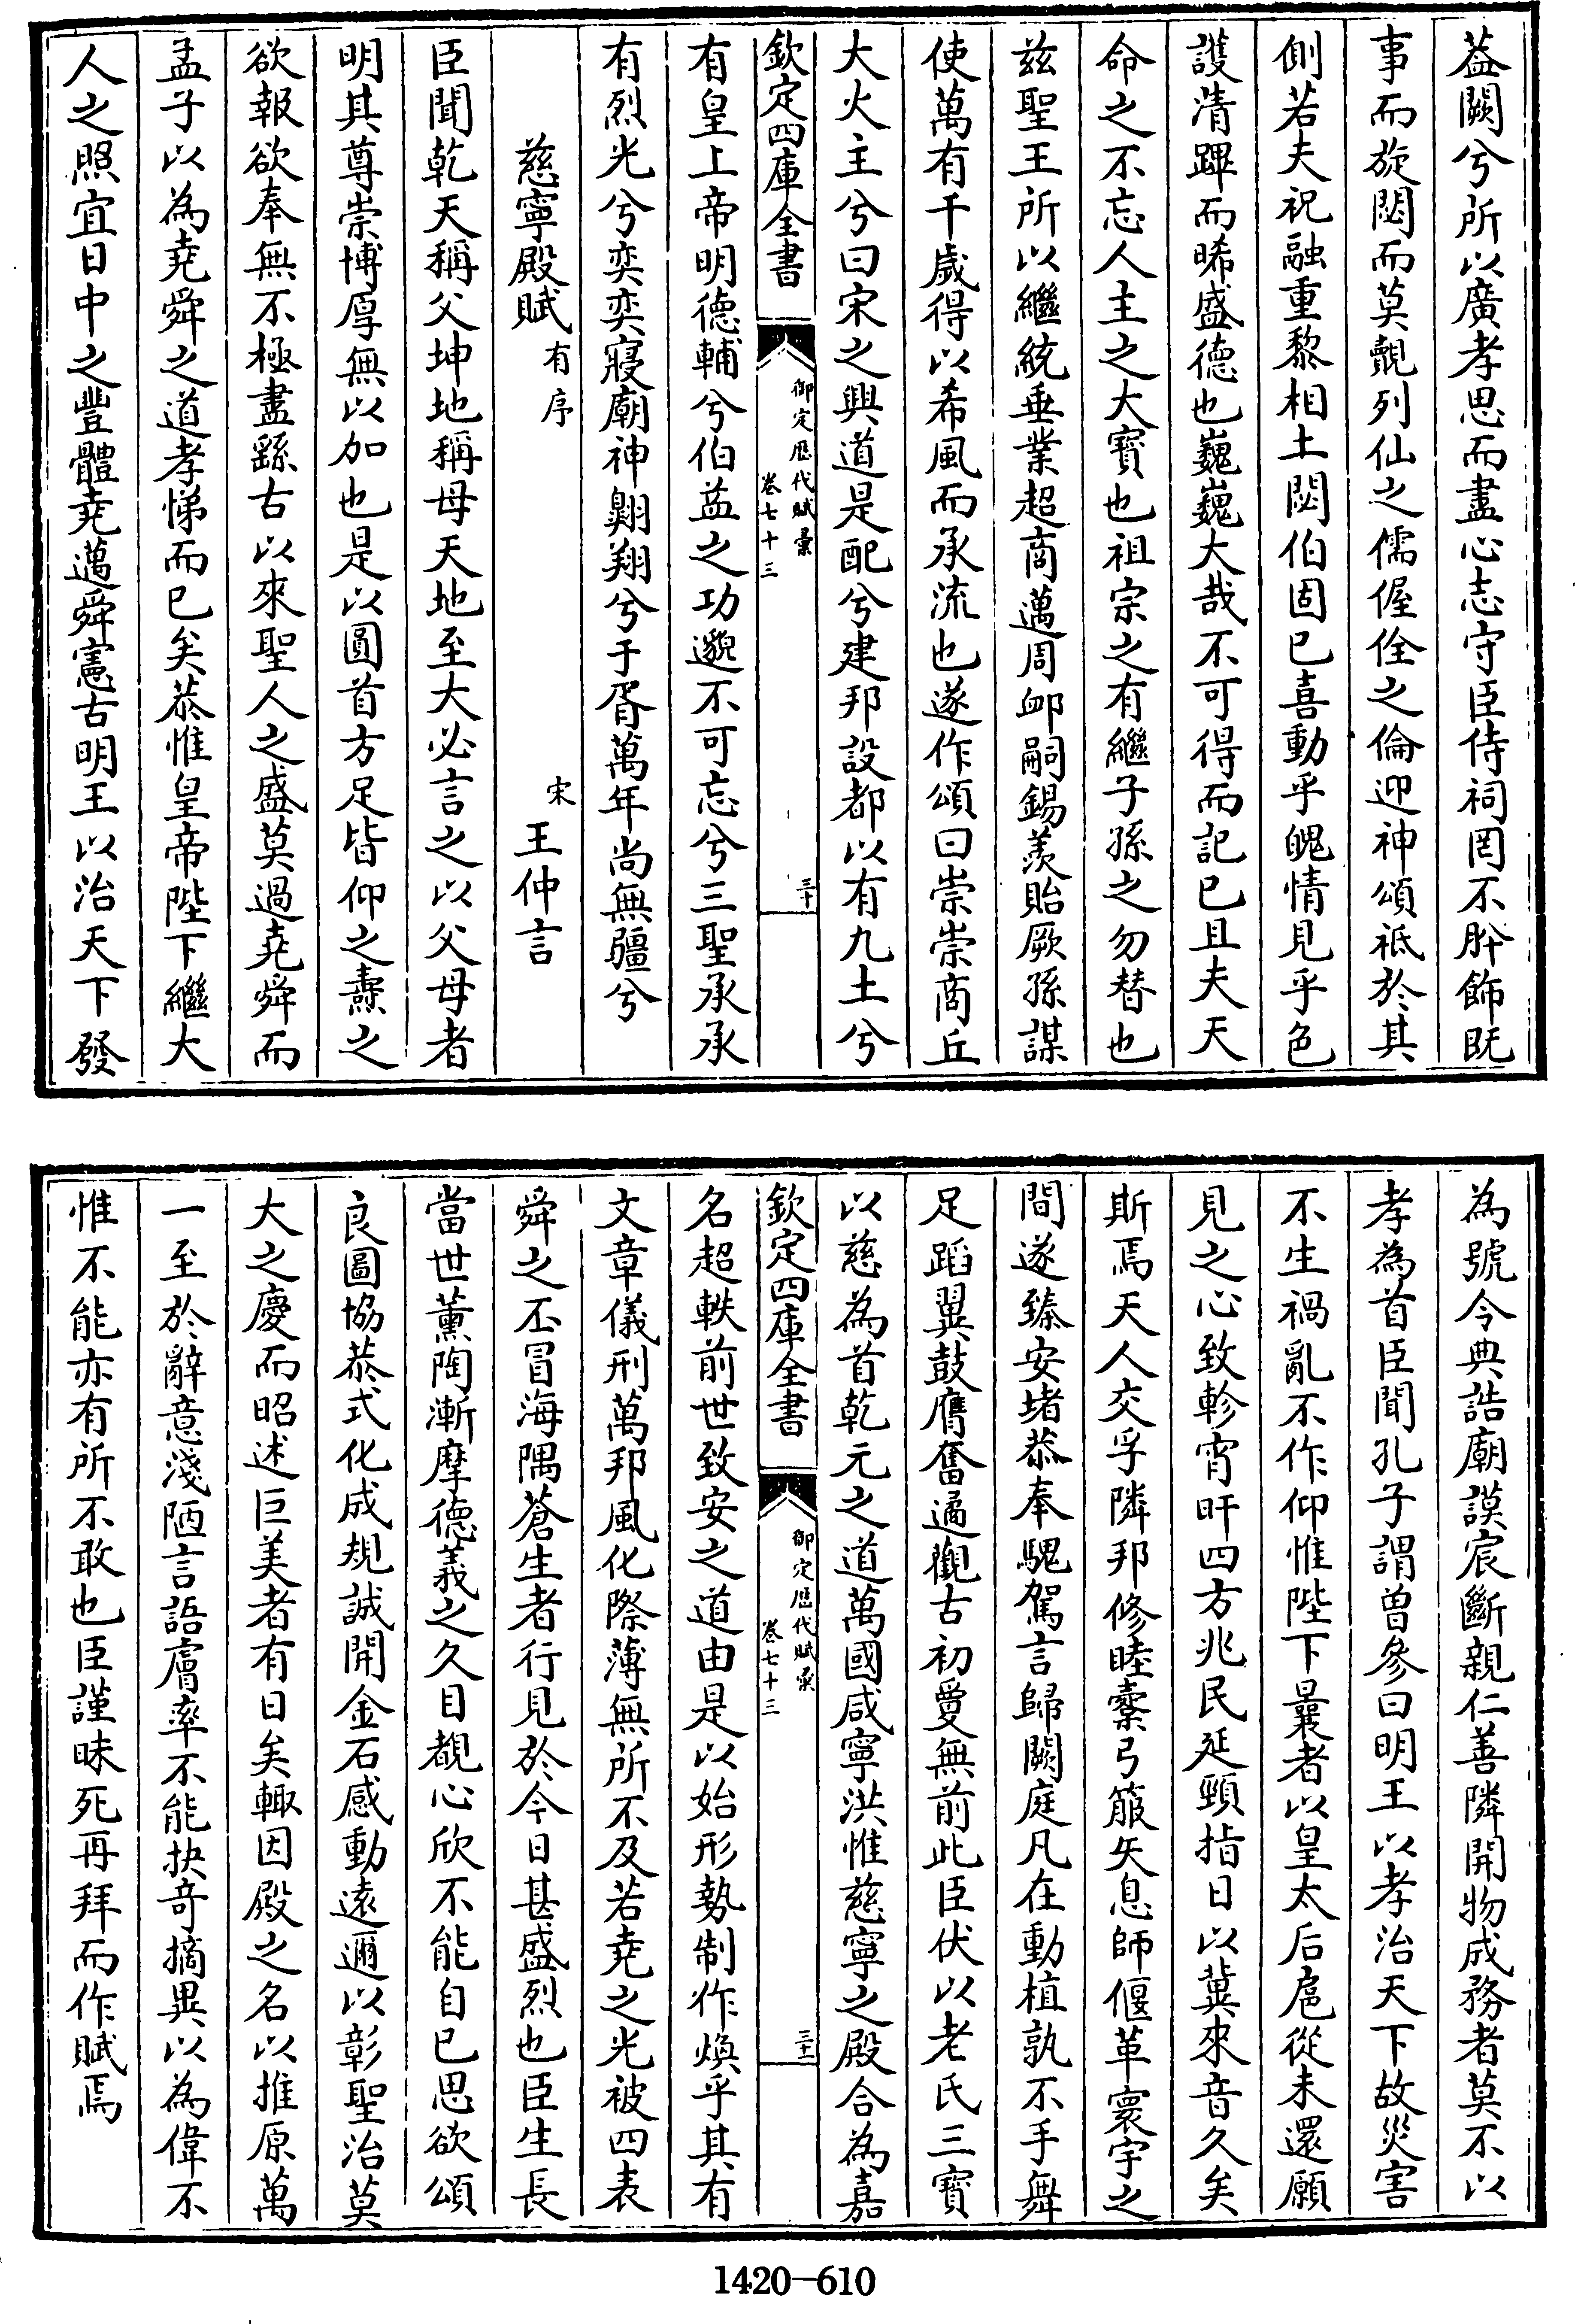 葢闕兮所以廣孝思而盡心志守臣侍祠罔不肸飾既
事而旋閟而莫覿列仙之儒偓佺之倫迎神頌祇於其
側若夫祝融重黎相土閼伯固已喜動乎魄情見乎色
頀清蹕而晞盛德也巍巍大哉不可得而記已且夫天
命之不忘人主之大寶也祖宗之有繼子孫之勿替也
兹聖王所以繼統垂業超商邁周䘏嗣錫羨貽厥孫謀
使萬有千歲得以希風而承流也遂作頌曰崇崇商丘
大火主兮曰宋之興道是配兮建邦設都以有九土兮
欽定四庫全書
御定歴代賦彚
卷七十三
三十
有皇上帝明德輔兮伯益之功邈不可忘兮三聖承承
有烈光兮奕奕寢廟神翺翔兮于胥萬年尚無疆兮
慈寧殿賦有序
宋王仲言
臣聞乾天稱父坤地稱母天地至大必言之以父母者
明其尊崇博厚無以加也是以圓首方足皆仰之燾之
欲報欲奉無不極盡繇古以來聖人之盛莫過堯舜而
孟子以為堯舜之道孝悌而已矣恭惟皇帝陛下繼大
人之照宜日中之豐體堯邁舜憲古明王以治天下發
為號令典誥廟謨宸斷親仁善隣開物成務者莫不以
孝為首臣聞孔子謂曾參曰明王以孝治天下故災害
不生禍亂不作仰惟陛下曩者以皇太后扈從未還願
見之心致軫宵旰四方兆民延頸指日以冀來音久矣
斯焉天人交孚隣邦修睦櫜弓箙矢息師偃革寰宇之
間遂臻安堵恭奉騩駕言歸闕庭凡在動植孰不手舞
足蹈翼鼓膺奮遹觀古初敻無前此臣伏以老氏三寶
以慈為首乾元之道萬國咸寧洪惟慈寧之殿合為嘉
欽定四庫全書
御定歴代賦彚
卷七十三
三十一
名超軼前世致安之道由是以始形勢制作煥乎其有
文章儀刑萬邦風化際薄無所不及若堯之光被四表
舜之丕冒海隅蒼生者行見於今日甚盛烈也臣生長
當世薰陶漸摩德義之久目覩心欣不能自已思欲頌
良圖協恭式化成規誠開金石感動遠邇以彰聖治莫
大之慶而昭述巨美者有日矣輙因殿之名以推原萬
一至於辭意淺陋言語膚率不能抉竒摘異以為偉不
惟不能亦有所不敢也臣謹昧死再拜而作賦焉
1420-610